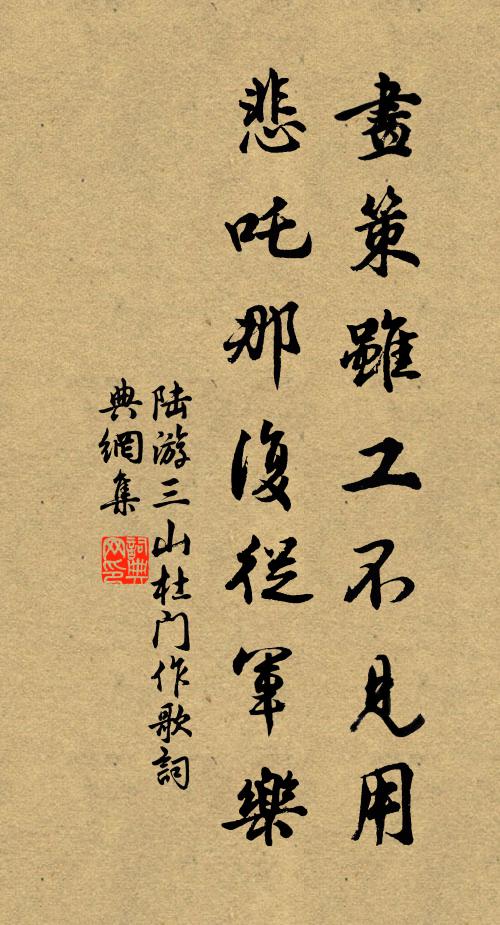 畫策雖工不見用
悲吒那復從軍樂
陆游三山杜门作歌詞
典網集
詞典
网印